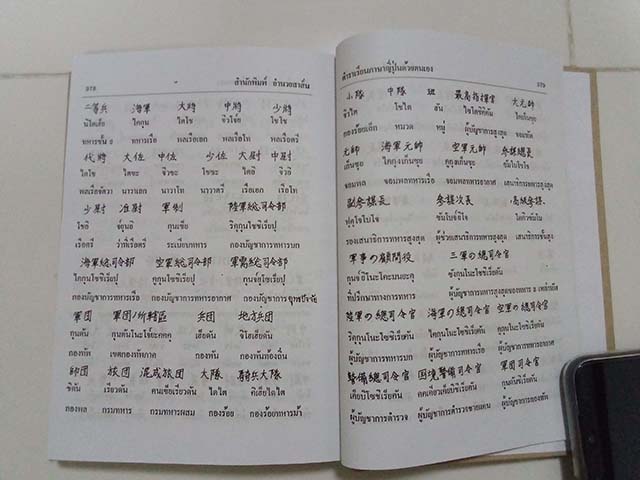 378
สำนักพิมพ์ อำนวยสาส์น
二等兵 海軍 大將 中將 少將
นิโตเฮอิ ไคกุน ไตโช ชิวโช โชโช
ทหารชั้น ๒ ทหารเรือ พลเรือเอก พลเรือโท พลเรือตรี
代將 大佐 中佐 少佐 大尉 中尉
ไดโช ไตซะ ชิวซะ โชซะ ไตอิ ชิวอิ
พลเรือจัตวา นาวาเอก นาวาโท นาวาตรี เรือเอก เรือโท
少尉 准尉 軍制 陸軍総司令部
โชอิ จุ่นอิ กุนเซอิ ริคุกุนโซชิเรียบุ
เรือตรี ว่าที่เรือตรี ระเบียบทหาร กองบัญชาการทหารบก
海軍総司令部 空軍総司令部 軍需総司令部
ไคกุนโซชิเรียบุ คูกุนโซชิเรียบุ
กองบัญชาการทหารเรือ กองบัญชาการทหารอากาศ
軍団 軍団ノ所轄区 兵団 地方兵団
กุนดัน เฮอิดัน ชิโฮเฮอิดัน
กองทัพ เขตกองทัพภาค กองพัน กองพันท้องถิ่น
師団 旅団 混成旅団 大隊 騎兵大隊
ชิดัน เรียวดัน คนเซอิเรียวดัน ไดไต คิเฮอิไดไต
กองพล กรมทหาร กรมทหารผสม กองร้อย กองร้อยทหารม้า
ตำราเรียนภาษาญี่ปุ่นด้วยตนเอง
379
小隊 中隊 班 最高指揮官 大元帥
โชไต ฮัน ไดเก็นซุย
กองร้อยเล็ก หมวด หมู่ ผู้บัญชาการสูงสุด จอมทัพ
元帥 海軍元帥 空軍元帥 参謀總長
เก็นซุย ไคกุงเก็นซุย คูกุงเก็นซุย ซัมโบโซโจ
จอมพล จอมพลทหารเรือ จอมพลทหารอากาศ เสนาธิการทหารสูงสุด
副参謀長 参謀次長 高級参謀
ฟุคุโซโบโจ ซัมโบจิโจ
รองเสนาธิการทหารสูงสุด ผู้ช่วยเสนาธิการทหารสูงสุด เสนาธิการชั้นสูง
軍事の顧問役 三軍の總司令官
กุนจิโนะโคะมนยะคุ ซังกุนโนะโซชิเรียคัน
ที่ปรึกษาทางการทหาร ผู้บัญชาการทหารสูงสุด ๓ เหล่าทัพ
陸軍の總司令官 海軍の總司令官 空軍の總司令官
ริคุกุนโนะโซชิเรียคัน ไคกุนโนะโซชิเรียคัน คูกุนโนะโซชิเรียคัน
ผู้บัญชาการทหารบก ผู้บัญชาการทหารเรือ ผู้บัญชาการทหารอากาศ
警備總司令官 国境警備司令官 軍団司令官
เคอิบิโซชิเรียคัน กุนดันชิเรียคัน
ผู้บัญชาการตำรวจ ผู้บัญชาการตำรวจชายแดน ผู้บัญชาการกองทัพ